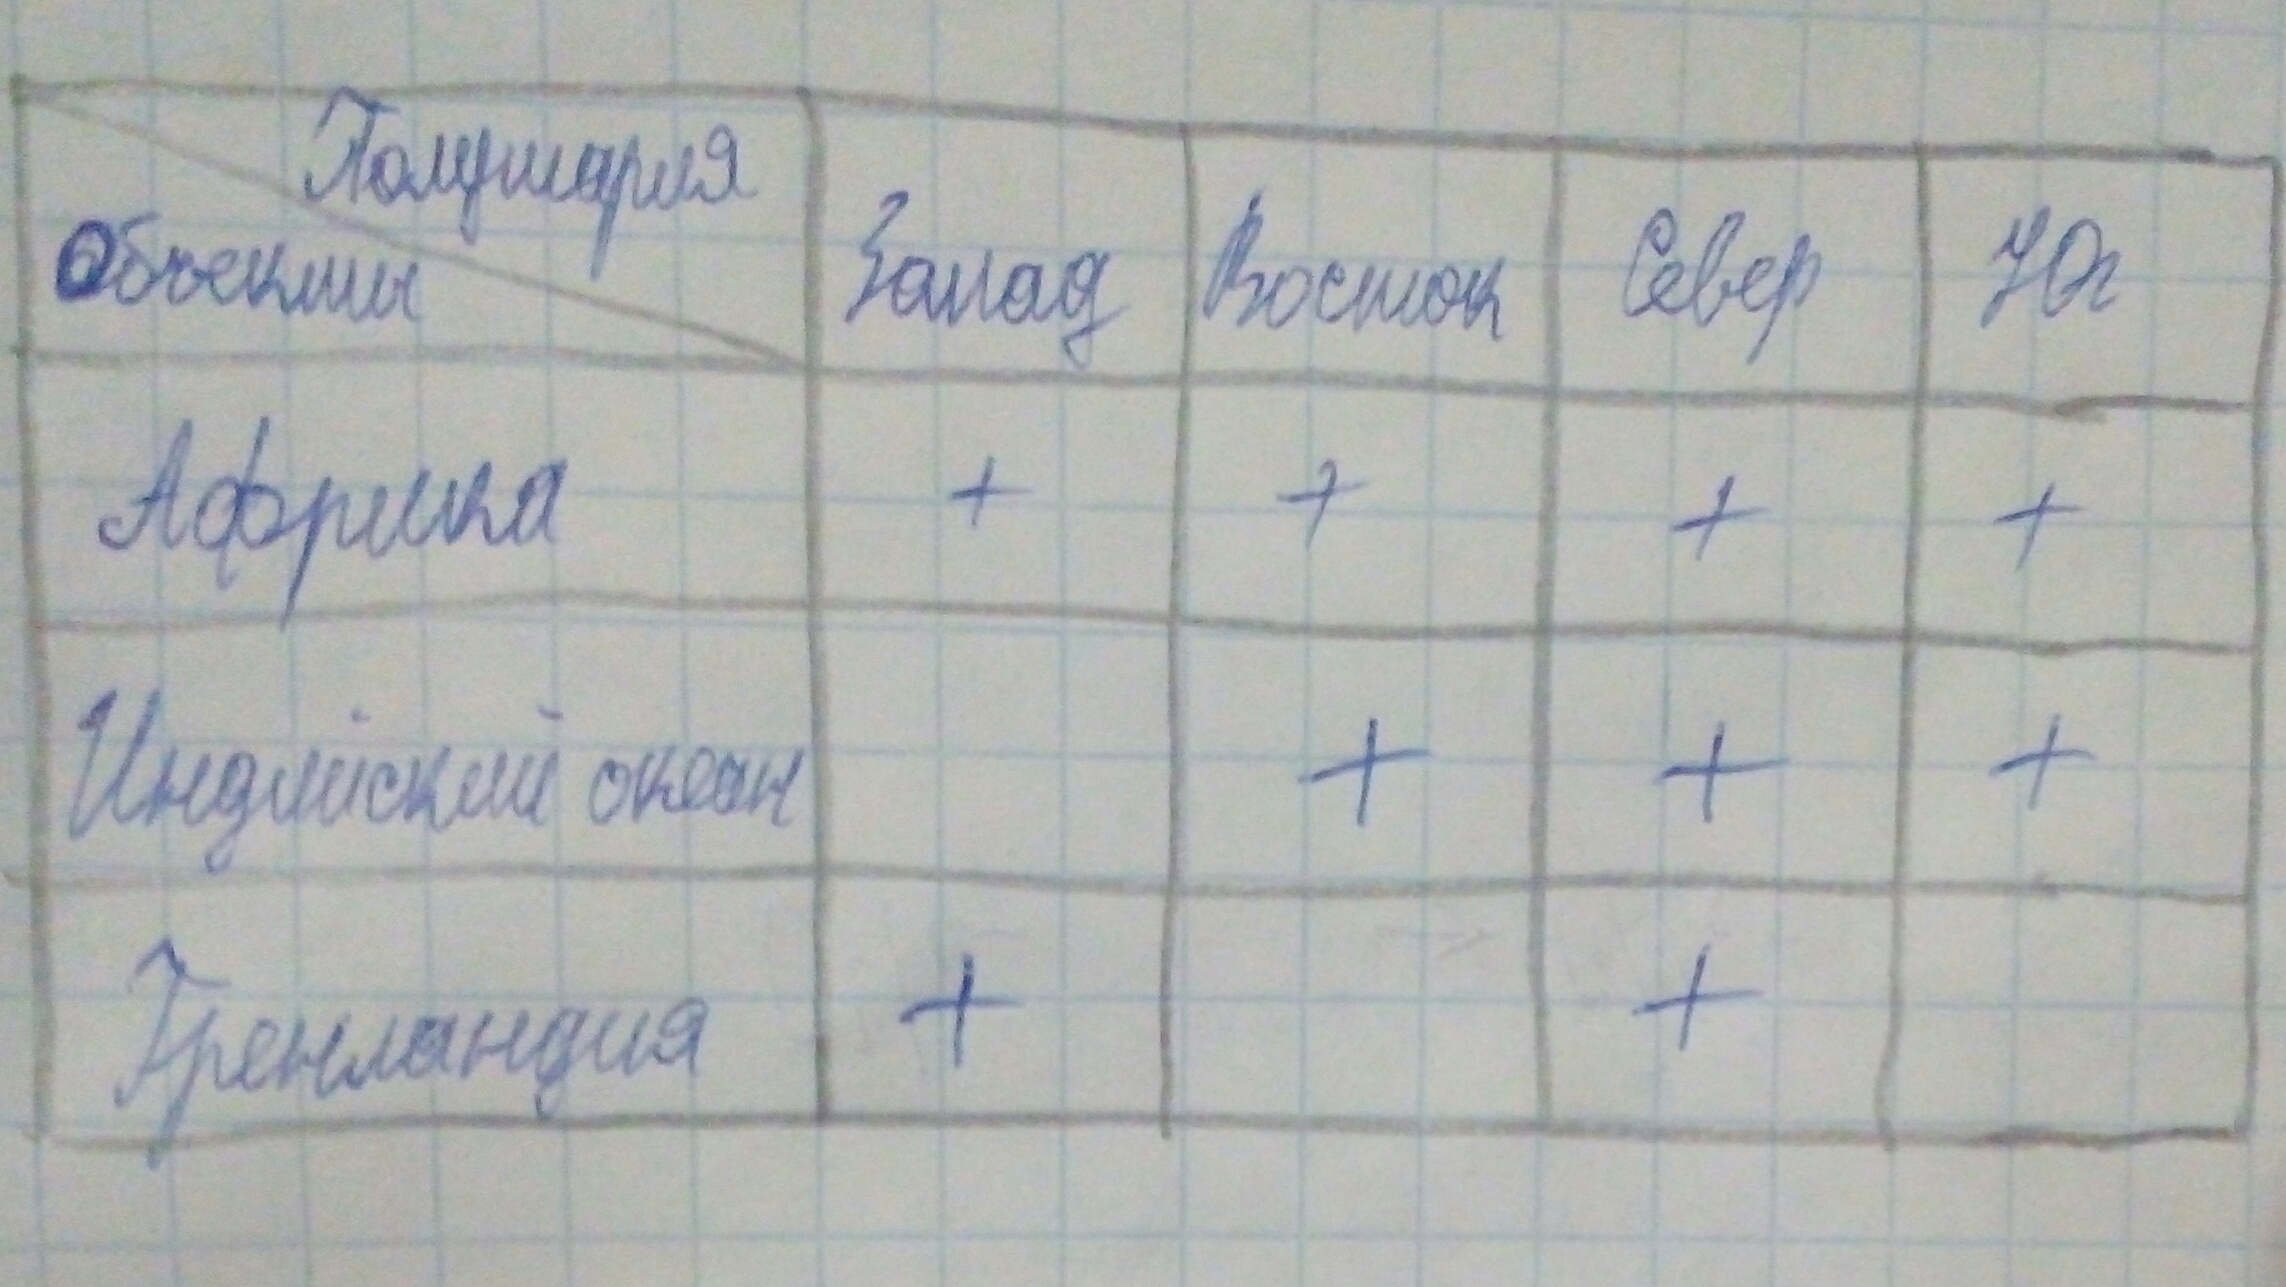 Полушария
Объекты Запад Восток Север Юг
Африка + + + +
Индийский океан + + +
Гренландия + +